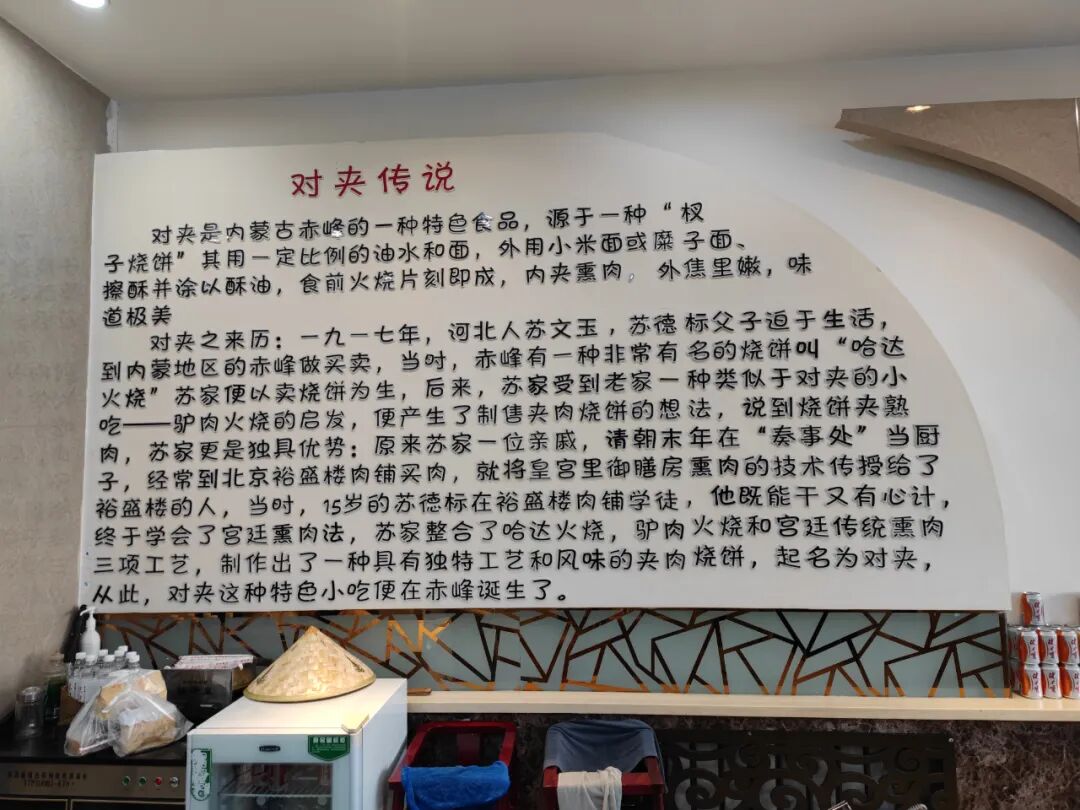 对夹传说
对夹是内蒙古赤峰的一种特色食品，源于一种“杈
子烧饼”其用一定比例的油水和面，外用小米面或糜子面、
擦酥并涂以酥油，食前火烧片刻即成，内夹熏肉，外焦里嫩，味
道极美
对夹之来历：一九一七年，河北人苏文玉，苏德标父子迫于生活，
到内蒙地区的赤峰做买卖，当时，赤峰有一种非常有名的烧饼叫“哈达
火烧”苏家便以卖烧饼为生，后来，苏家受到老家一种类似于对夹的小
吃——驴肉火烧的启发，便产生了制售夹肉烧饼的想法，说到烧饼夹熟
肉，苏家更是独具优势：原来苏家一位亲戚，请朝末年在“奏事处”当厨
子，经常到北京裕盛楼肉铺买肉，就将皇宫里御膳房熏肉的技术传授给了
裕盛楼的人，当时，15岁的苏德标在裕盛楼肉铺学徒，他既能干又有心计，
终于学会了宫廷熏肉法，苏家整合了哈达火烧，驴肉火烧和宫廷传统熏肉
三项工艺，制作出了一种具有独特工艺和风味的夹肉烧饼，起名为对夹，
从此，对夹这种特色小吃便在赤峰诞生了。